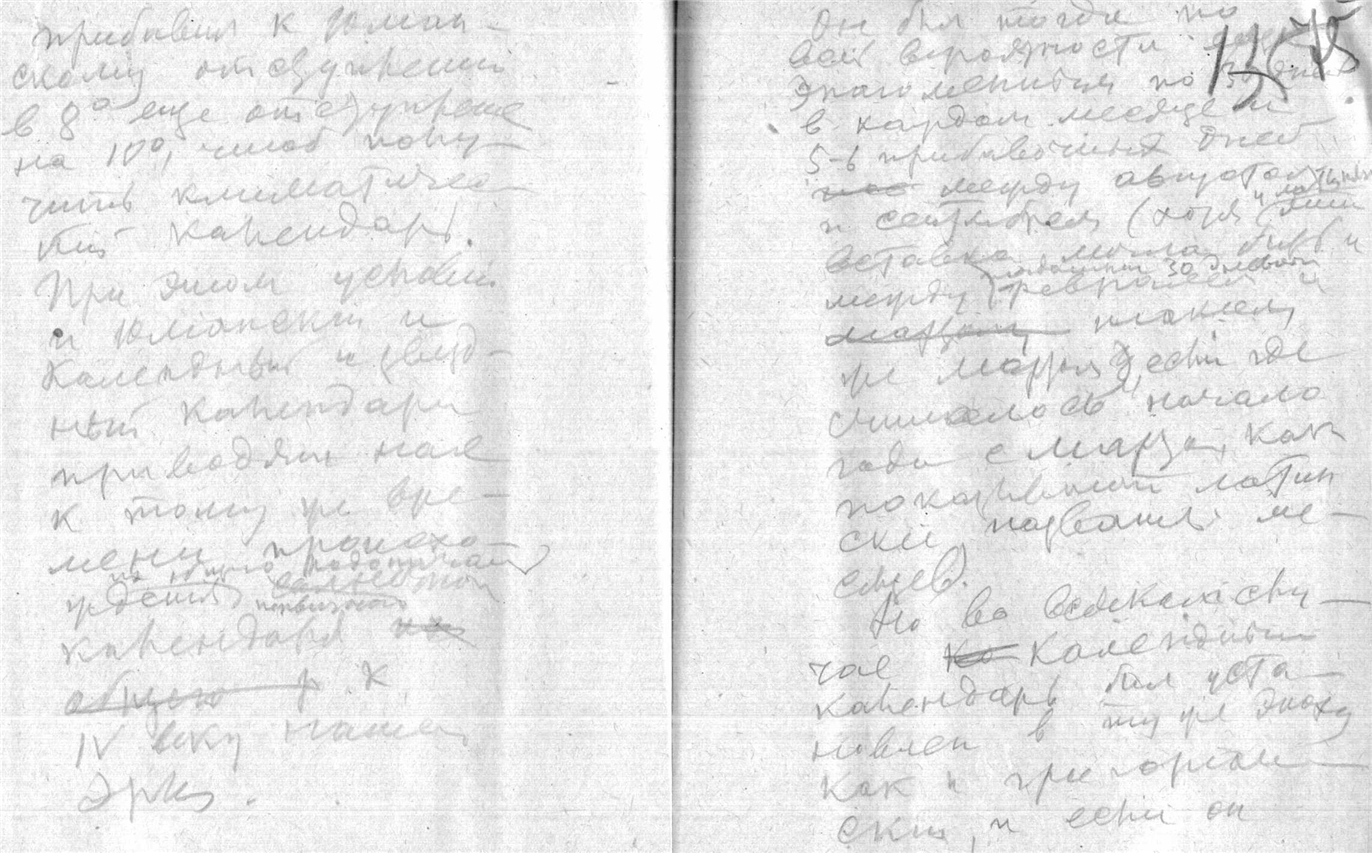 прибавил к Юлиан-
скому отступлению
в 8° еще отступление
на 10°, чтоб полу-
чить климатичес-
кий календарь.
При этом условии
и Юлианский и
Календный и звезд-
ный календари
приводят нас
к тому же вре-
мени происхо-
ждения
календаря
общего к
IV веку нашей
эры.
Он был тогда по
всей вероятности
по 30 дней
в каждом месяце и
5-6 прибавочных дней
между августом
и сентябрем (хотя
вставка могла быть и
30 дневным
между февралем и
мартом
же марта), если где
считалось начало
года с марта, как
показывают латин
ские названия ме-
сяцев.
Но во всяком слу-
чае Календный
календарь был уста-
новлен в ту же эпоху
как и григориан-
ский, и если он